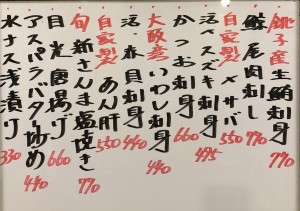 銚子産生鮪刺身 770
鯨尾肉刺し 770
自家製〆サバ 550
活〆スズキ刺身 495
かつお刺身 660
大阪産いわし刺身 440
活〆赤貝刺身 440
自家製あん肝 550
旬新さんま塩焼き 770
目光唐揚げ 660
アスパラバター炒め 440
水ナス浅漬け 330